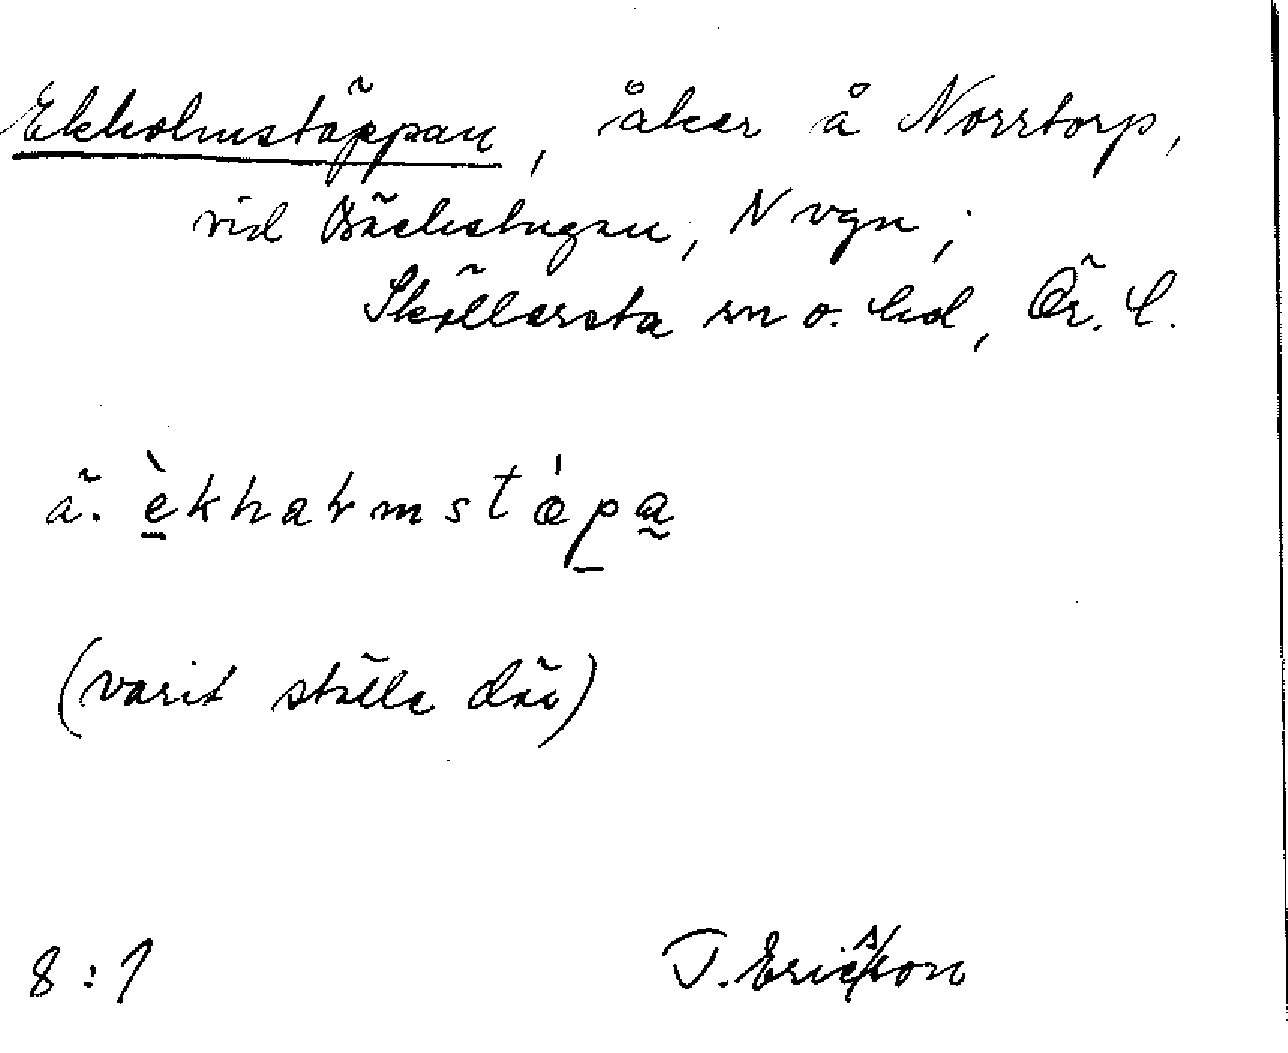 Ekholmstäppan, åker å Norrtorp,
vid Bäckstugan, N vgn,
Sköllersta sn o. hd, Ör. l.
ä. èkhaɫmstǽpa
(varit ställe där)
8:1 T. Ericsson